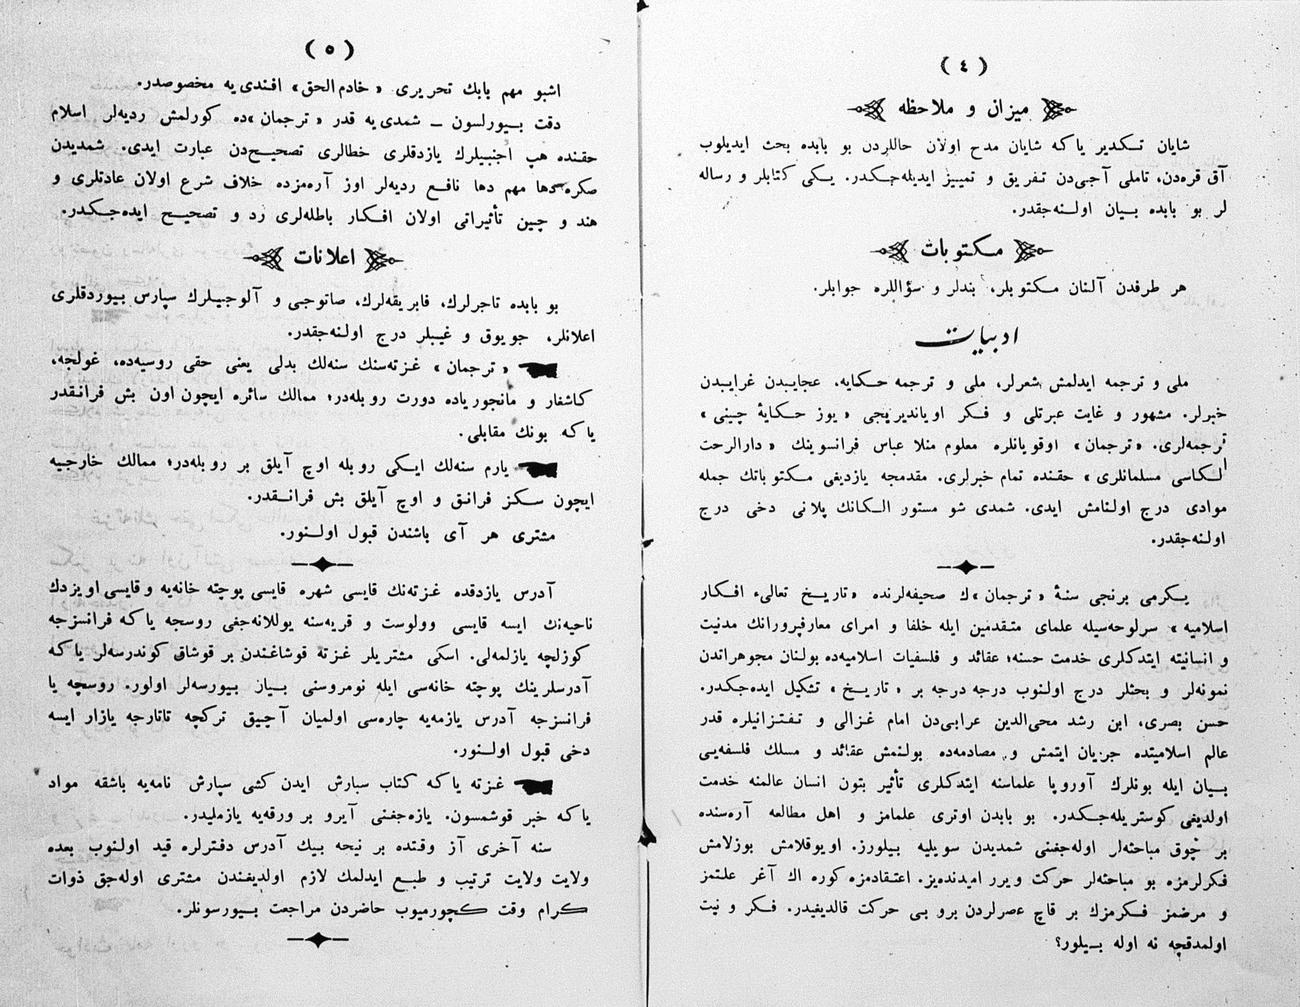 ﴿ ٤ ﴾
ميزان و ملاحظه
شايان تكدير ياكه شايان مدح اولان حاللردن بو بابده بحث ايديلوب
آق قره‌دن، تاملى آجى‌دن تفريق و تمييز ايديله‌جكدر. يكى كتابلر و رساله
لر بو بابده بيان اولنه‌جقدر.
مكتوبات
هر طرفدن آلنان مكتوبلر، بندلر و سؤاللره جوابلر.
ادبيات
ملى و ترجمه ايدلمش شعرلر، ملى و ترجمه حكايه، عجايبدن غرايبدن
خبرلر. مشهور و غايت عبرتلى و فكر اوياندیریجى «يوز حكاية چينى»
ترجمه‌لرى. «ترجمان» اوقويانلره معلوم منلا عباس فرانسوينك «دارالرحت
الكاسى مسلمانلرى» حقنده تمام خبرلرى. مقدمجه يازديغى مكتوباتك جمله
موادى درج اولنامش ايدى. شمدى شو مستور الكانك پلانى دخى درج
اولنه‌جقدر.
يكرمى برنجى سنۀ «ترجمان»ك صحيفه‌لرنده «تاريخ تعالىء افكار
اسلاميه» سرلوحه‌سيله علماى متقدمين ايله خلفا و امراى معارفپرورانك مدنيت
و انسانيته ايتدكلرى خدمت حسنه؛ عقائد و فلسفيات اسلاميه‌ده بولنان مجوهراتدن
نمونه‌لر و بحثلر درج اولنوب درجه درجه بر «تاريخ» تشكيل ايده‌جكدر.
حسن بصرى، ابن رشد محى‌الدين عرابى‌دن امام غزالى و تفتزانيلره قدر
عالم اسلاميتده جريان ايتمش و مصادمه‌ده بولنمش عقائد و مسلك فلسفه‌يى
بيان ايله بونلرك آوروپا علماسنه ايتدكلرى تأثير بتون انسان عالمنه خدمت
اولديغى كوستريله‌جكدر. بو بابدن اوترى علمامز و اهل مطالعه آره‌سنده
بر چوق مباحثه‌لر اوله‌جغنى شمديدن سويليه بيلورز. اويوقلامش بوزلامش
فكرلرمزه بو مباحثه‌لر حركت ويرر اميدنده‌يز. اعتقادمزه كوره اك آغر علتمز
و مرضمز فكرمزك بر قاچ عصرلردن برو بى حركت قالديغيدر. فكر و نيت
اولمدقچه نه اوله بيلور؟
﴿ ٥ ﴾
اشبو مهم بابك تحريرى «خادم الحق» افندى‌يه مخصوصدر.
دقت بيورلسون ــ شمدى‌يه قدر «ترجمان»ده كورلمش رديه‌لر اسلام
حقنده هپ اجنبيلرك يازدقلرى خطالرى تصحيح‌دن عبارت ايدى. شمديدن
صكره دها مهم دها نافع رديه‌لر اوز آره‌مزده خلاف شرع اولان عادتلرى و
هند و چين تأثيراتى اولان افكار باطله‌لرى رد و تصحيح ايده‌جكدر.
اعلانات
بو بابده تاجرلرك، فابريقه‌لرك، صاتوجى و آلوجيلرك سپارس بيوردقلرى
اعلانلر، جويوق و غيبلر درج اولنه‌جقدر.
«ترجمان» غزته‌سنك سنه‌لك بدلى يعنى حقى روسيه‌ده، غولجه،
كاشغار و مانجورياده دورت روبله‌در؛ ممالك سائره ايچون اون بش فرانقدر
ياكه بونك مقابلى.
يارم سنه‌لك ايكى روبله اوچ آيلق بر روبله‌در؛ ممالك خارجيه
ايچون سكز فرانق و اوچ آيلق بش فرانقدر.
مشترى هر آى باشندن قبول اولنور.
آدرس يازدقده غزته‌نك قايسى شهره قايسى پوچته خانه‌يه و قايسى اويزدك
ناحيه‌نك ايسه قايسى وولوست و قريه‌سنه يوللانه‌جغى روسجه ياكه فرانسزجه
كوزلچه يازلمه‌لى. اسكى مشتريلر غزته قوشاغندن بر قوشاق كوندرسه‌لر ياكه
آدرسلرينك پوچته خانه‌سى ايله نومروسنى بيان بيورسه‌لر اولور. روسچه يا
فرانسزجه آدرس يازمه‌يه چاره‌سى اولميان آچيق تركچه تاتارجه يازار ايسه
دخى قبول اولنور.
غزته ياكه كتاب سبارش ايدن كشى سپارش نامه‌يه باشقه مواد
ياكه خبر قوشمسون. يازه‌جغنى آيرو بر ورقه‌يه يازمليدر.
سنه آخرى آز وقتده بر نيحه بيك آدرس دفترلره قيد اولنوب بعده
ولايت ولايت ترتيب و طبع ايدلمك لازم اولديغندن مشترى اوله‌جق ذوات
كرام وقت كچورميوب حاضردن مراجعت بيورسونلر.